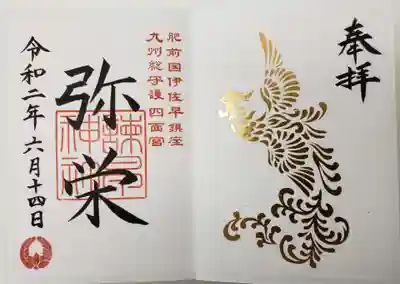 奉拝
肥前国伊佐早鎮座
九州総守護四面宮
弥栄
諫早
神社
令和二年六月十四日